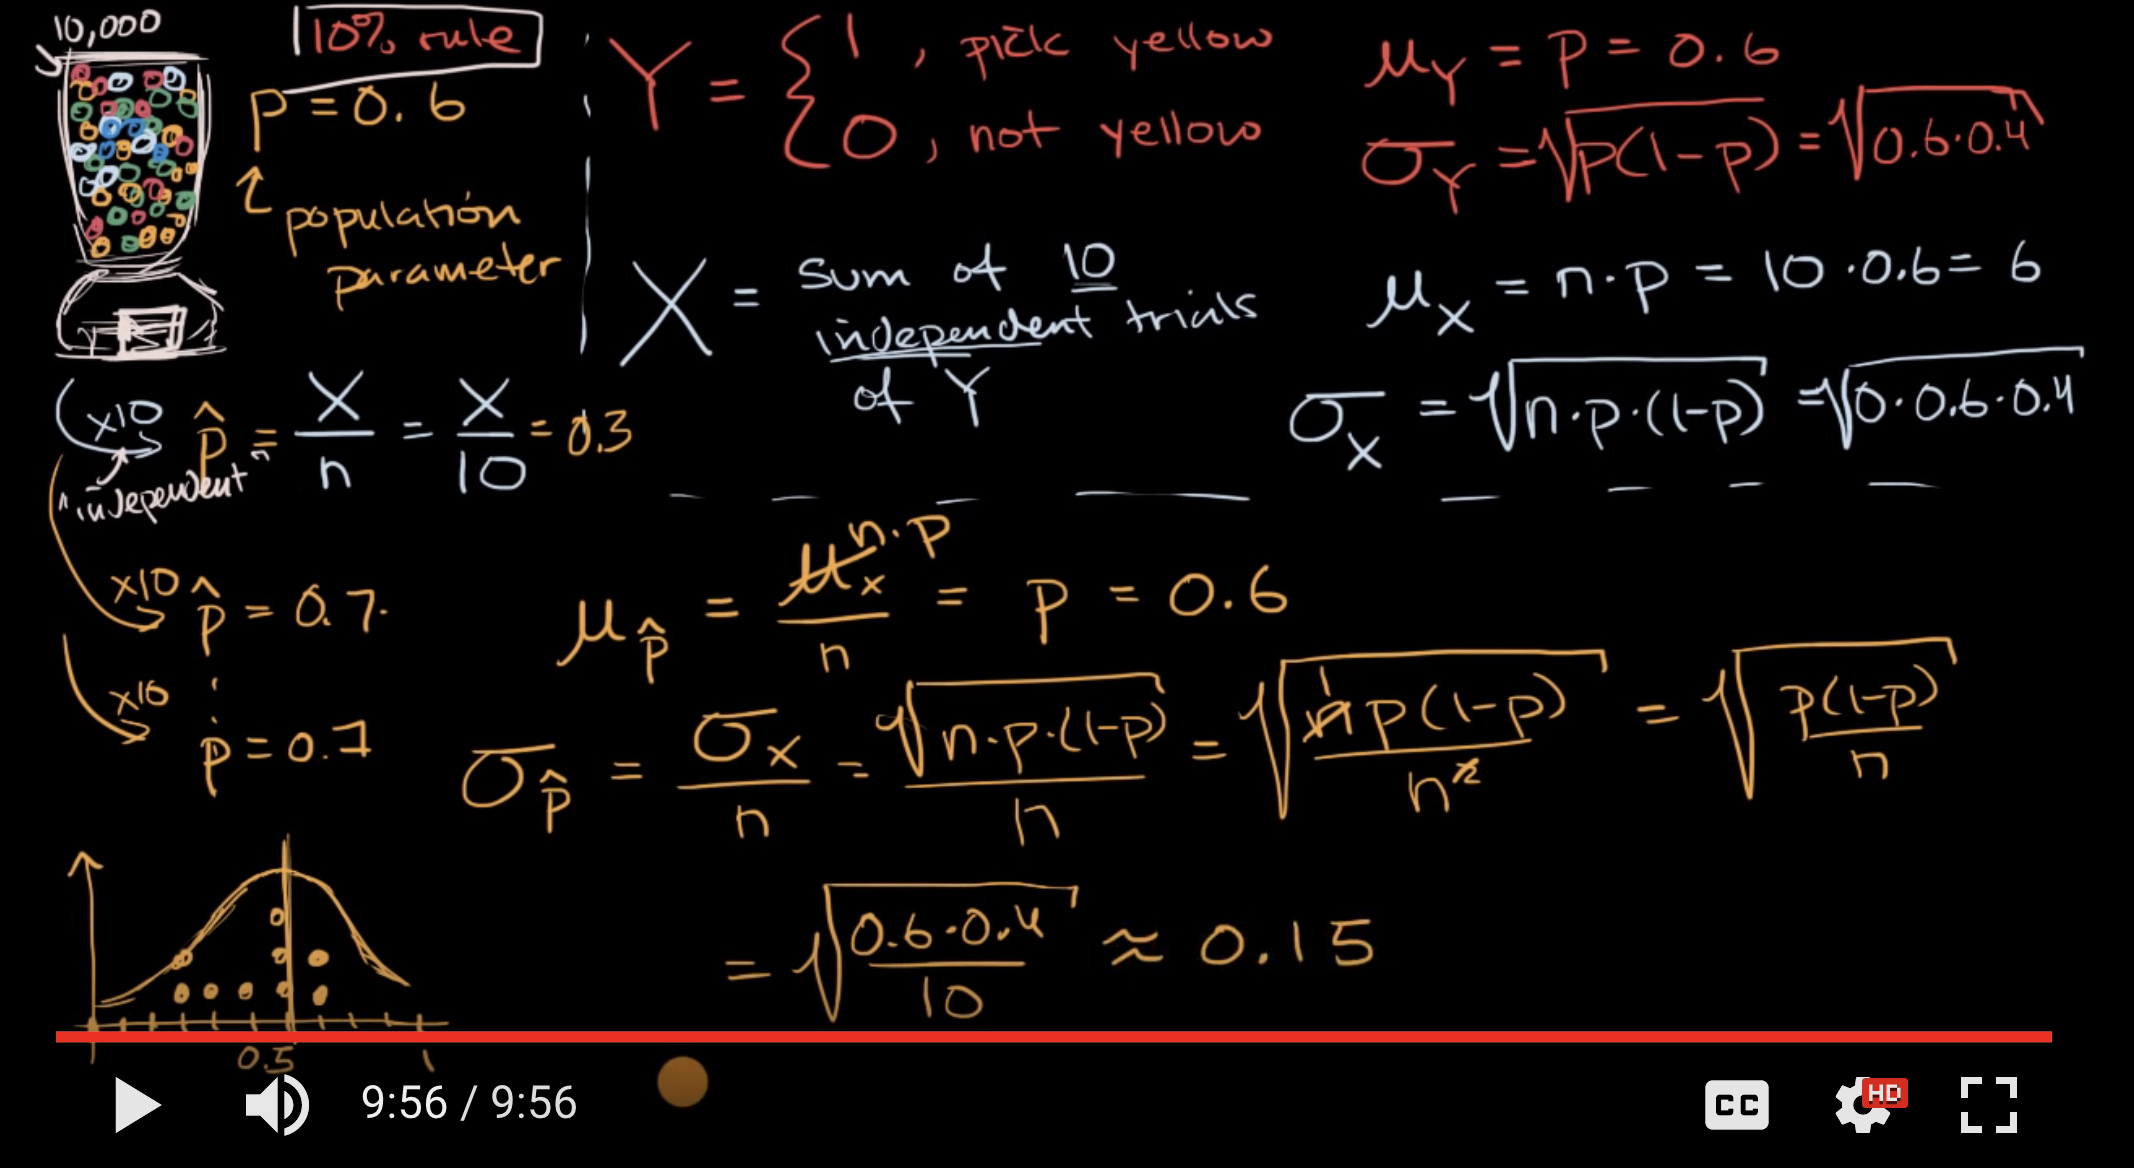 10,000
10% rule
p = 0.6
population
parameter
Y = { 1, pick yellow
0, not yellow
μ_Y = p = 0.6
σ_Y = √(p(1-p)) = √(0.6·0.4)
X = sum of 10
independent trials
of Y
μ_X = n·p = 10·0.6 = 6
σ_X = √(n·p·(1-p)) = √(10·0.6·0.4)
x10 p̂ = X/n = X/10 = 0.3
"independent"
x10 p̂ = 0.7
x10
p̂ = 0.7
μ_p̂ = μ_X/n = p = 0.6
n·p
σ_p̂ = σ_X/n = √(n·p·(1-p))/n = √(n p(1-p)/n²) = √(p(1-p)/n)
1
= √(0.6·0.4/10) ≈ 0.15
0.5 1
9:56 / 9:56
CC
HD